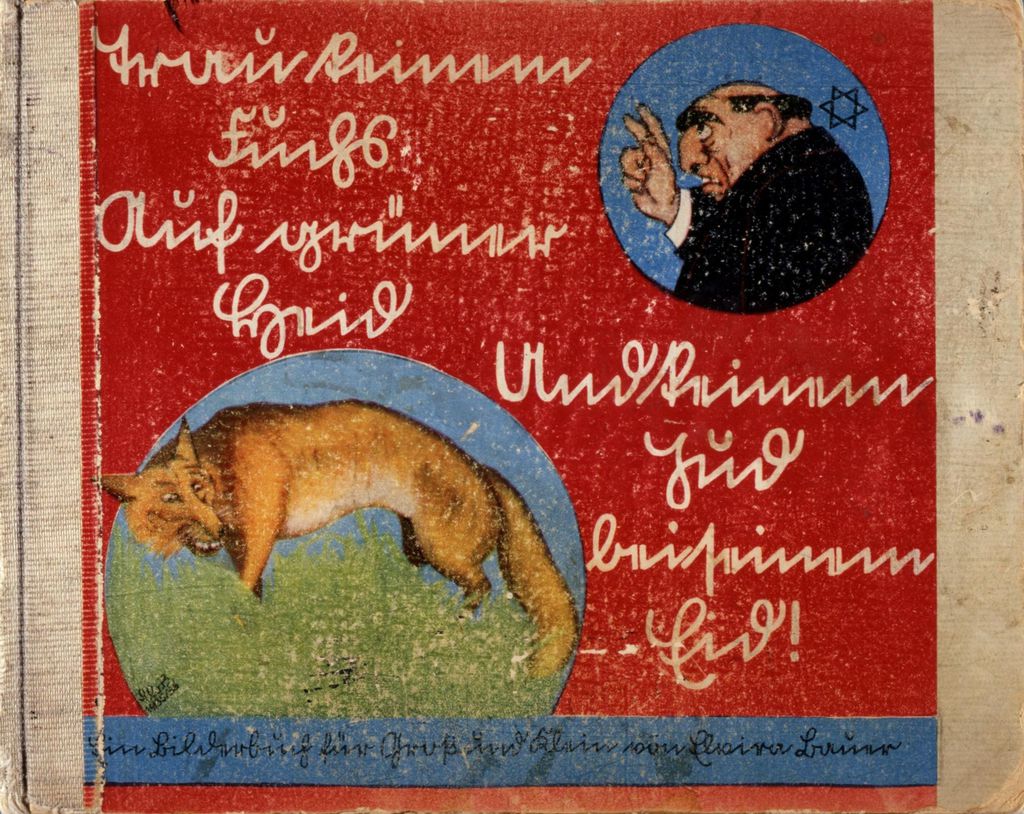 Trau keinem
Fuchs
Auf grüner
Heid
Und keinem
Jud
bei seinem
Eid!
Ein Bilderbuch für Groß und Klein von Elvira Bauer